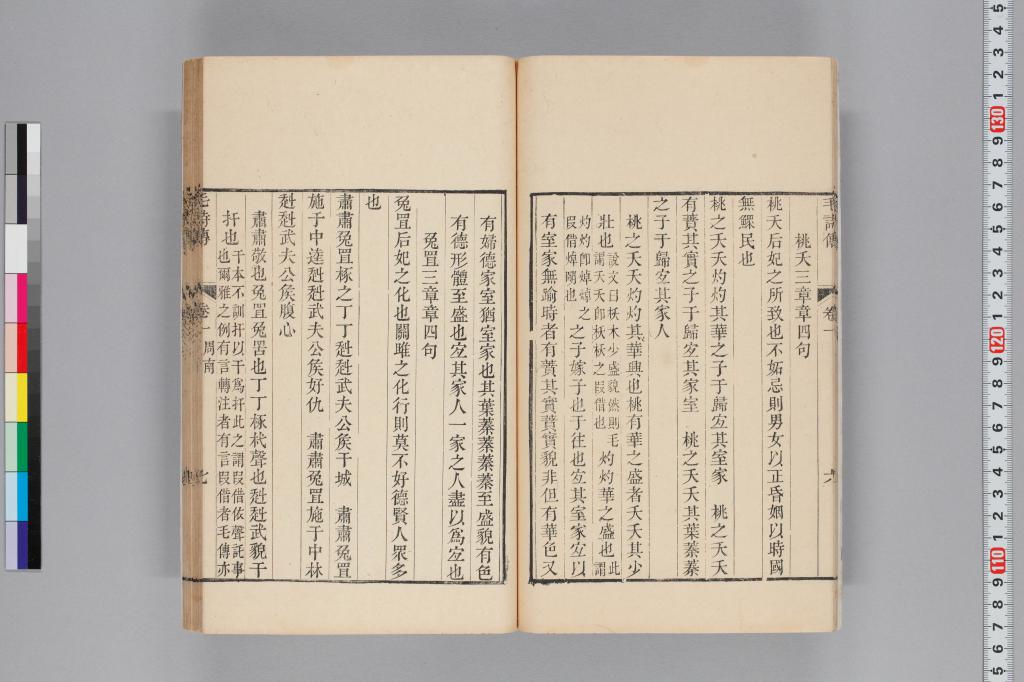 桃夭三章章四句
桃夭后妃之所致也不妬忌則男女以正昏姻以時國
無鰥民也
桃之夭夭灼灼其華之子于歸宐其室家　桃之夭夭
有蕡其實之子于歸宐其家室　桃之夭夭其葉蓁蓁
之子于歸宐其家人
桃之夭夭灼灼其華興也桃有華之盛者夭夭其少
壯也說文曰枖木少盛皃然則毛謂夭夭卽枖枖之叚借也灼灼華之盛也此謂灼灼卽焯焯之叚借焯明也之子嫁子也于往也宐其室家宐以
有室家無踰時者有蕡其實蕡實皃非但有華色又
有婦德家室猶室家也其葉蓁蓁蓁蓁至盛皃有色
有德形體至盛也宐其家人一家之人盡以爲宐也
兔罝三章章四句
兔罝后妃之化也關雎之化行則莫不好德賢人衆多
也
肅肅兔罝椓之丁丁赳赳武夫公矦干城　肅肅兔罝
施于中逵赳赳武夫公矦好仇　肅肅兔罝施于中林
赳赳武夫公矦腹心
肅肅敬也兔罝兔罟也丁丁椓杙聲也赳赳武皃干
扞也干本不訓扞以干爲扞此之謂叚借依聲託事也爾雅之例有言轉注者有言叚借者毛傳亦
毛詩傳　卷一　周南　七
毛詩傳　卷一